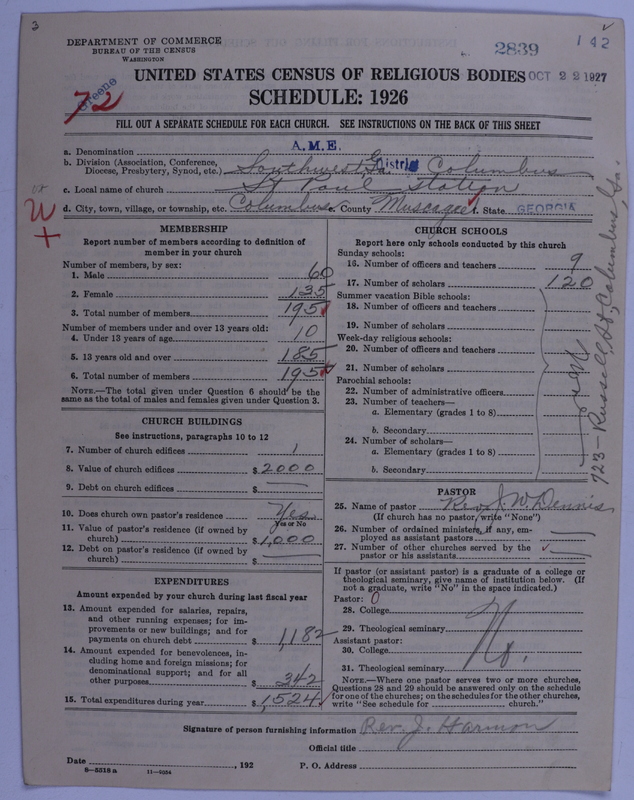 3
2839
142
DEPARTMENT OF COMMERCE
BUREAU OF THE CENSUS
WASHINGTON
UNITED STATES CENSUS OF RELIGIOUS BODIES OCT 22 1927
Greene
72
SCHEDULE: 1926
FILL OUT A SEPARATE SCHEDULE FOR EACH CHURCH. SEE INSTRUCTIONS ON THE BACK OF THIS SHEET
a. Denomination A.M.E.
b. Division (Association, Conference, Diocese, Presbytery, Synod, etc.) Southwest Ga. District Columbus
c. Local name of church St Paul Station
d. City, town, village, or township, etc. Columbus e. County Muscogee f. State GEORGIA
MEMBERSHIP
Report number of members according to definition of
member in your church
Number of members, by sex:
1. Male 60
2. Female 135
3. Total number of members 195
Number of members under and over 13 years old:
4. Under 13 years of age 10
5. 13 years old and over 185
6. Total number of members 195
NOTE.—The total given under Question 6 should be
same as the total of males and females given under Question 3.
CHURCH BUILDINGS
See instructions, paragraphs 10 to 12
7. Number of church edifices 1
8. Value of church edifices $ 2000
9. Debt on church edifices $
10. Does church own pastor's residence Yes
Yes or No
11. Value of pastor's residence (if owned by
church) $ 1,000
12. Debt on pastor's residence (if owned by
church) $
EXPENDITURES
Amount expended by your church during last fiscal year
13. Amount expended for salaries, repairs,
and other running expenses; for im-
provements or new buildings; and for
payments on church debt $ 1,182
14. Amount expended for benevolences, in-
cluding home and foreign missions; for
denominational support; and for all
other purposes $ 342
15. Total expenditures during year $ 1,524
CHURCH SCHOOLS
Report here only schools conducted by this church
Sunday schools:
16. Number of officers and teachers 9
17. Number of scholars 120
Summer vacation Bible schools:
18. Number of officers and teachers
19. Number of scholars
Week-day religious schools:
20. Number of officers and teachers
21. Number of scholars
Parochial schools:
22. Number of administrative officers
23. Number of teachers—
a. Elementary (grades 1 to 8)
b. Secondary
24. Number of scholars—
a. Elementary (grades 1 to 8)
b. Secondary
723-Russell St, Columbus, Ga.
PASTOR
25. Name of pastor Rev. J. W. Dennis
(If church has no pastor, write "None")
26. Number of ordained ministers, if any, em-
ployed as assistant pastors
27. Number of other churches served by the
pastor or his assistants
If pastor (or assistant pastor) is a graduate of a college or
theological seminary, give name of institution below. (If
not a graduate, write "No" in the space indicated.)
Pastor: 0
28. College
29. Theological seminary
No.
Assistant pastor:
30. College
31. Theological seminary
NOTE.—Where one pastor serves two or more churches,
Questions 28 and 29 should be answered only on the schedule
for one of the churches; on the schedules for the other churches,
write "See schedule for church."
Signature of person furnishing information Rev. J. Harmon
Official title
Date , 192 P. O. Address
8-5518 a 11-9054